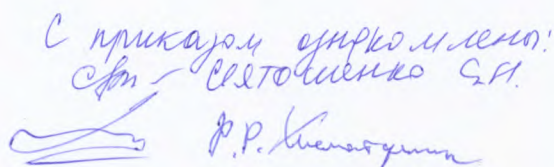 С приказом ознакомлены:
Святошенко С.Н.
Р.Р. Хисматуллин